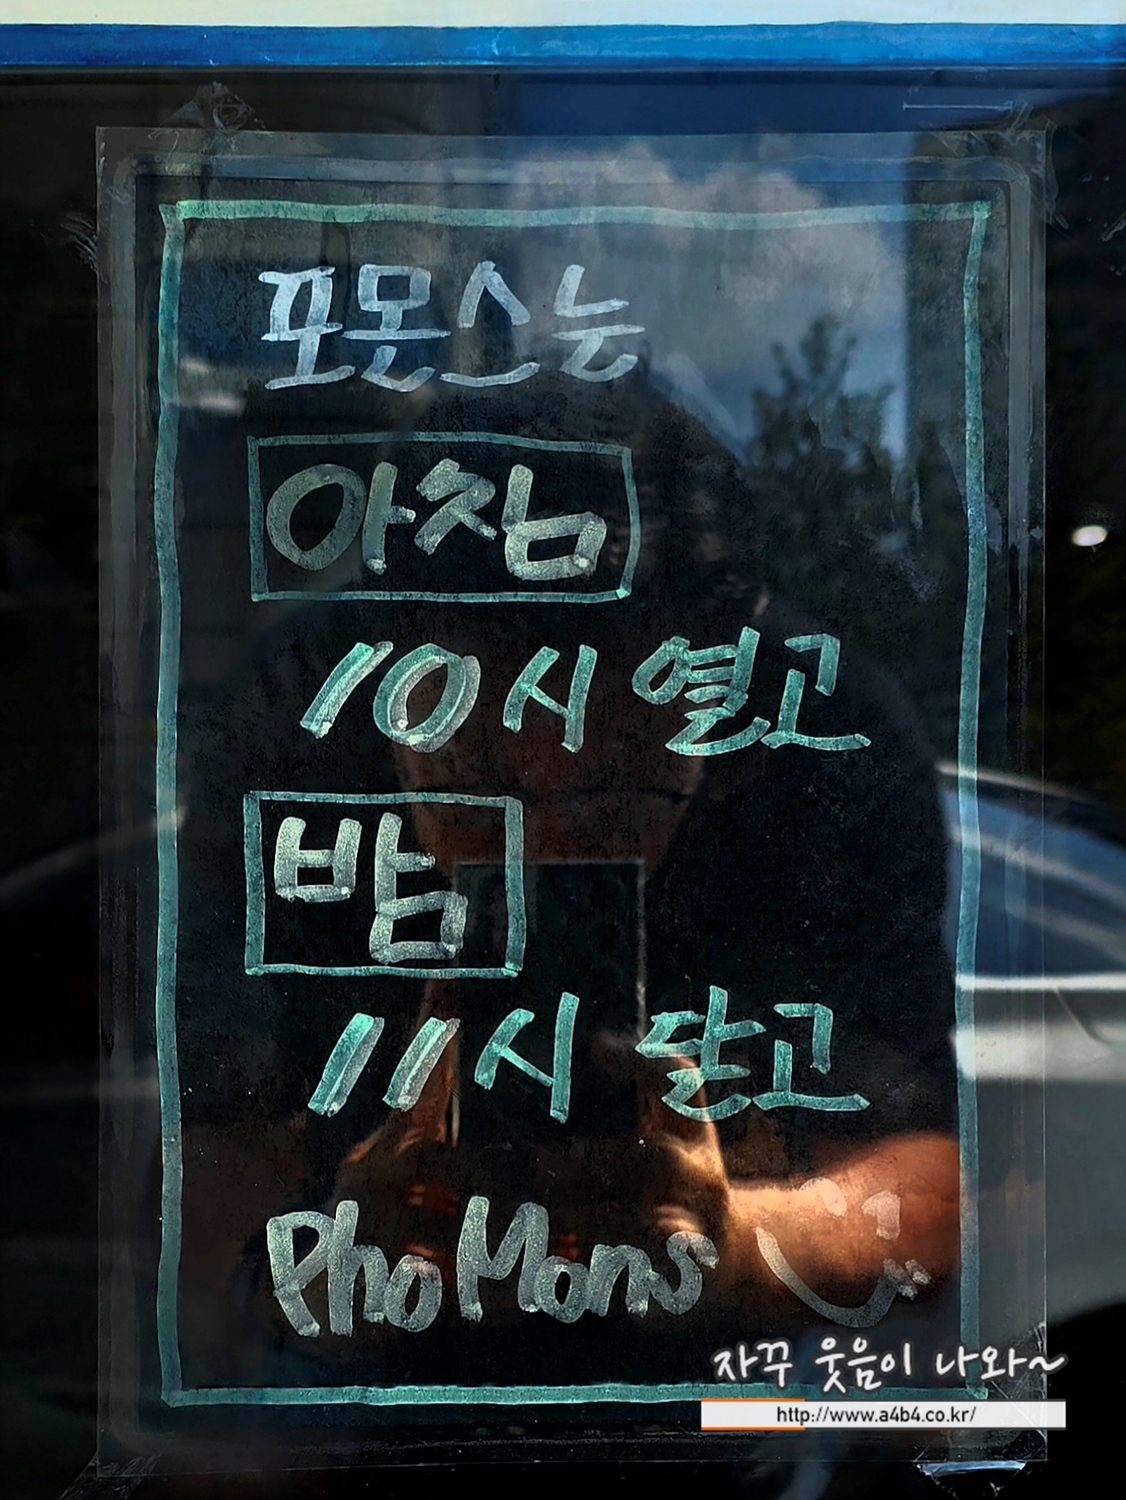 포몬스는
아침
10시 열고
밤
11시 닫고
PhoMons
자꾸 웃음이 나와~
http://www.a4b4.co.kr/